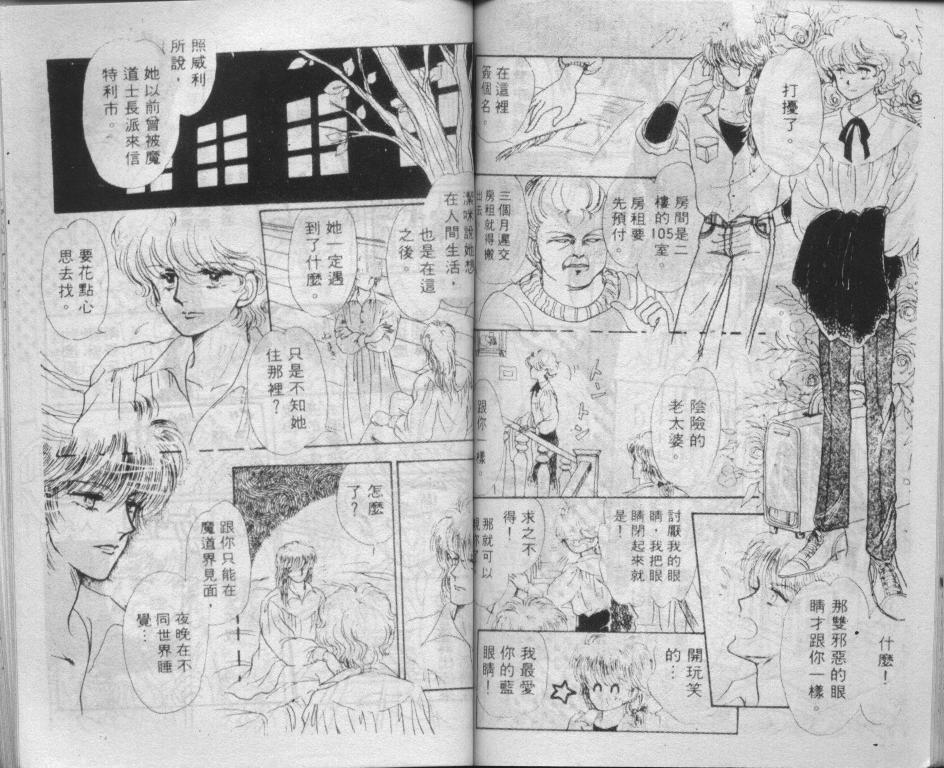 打擾了。
在這裡
簽個名。
房間是二
樓的105室。
房租要
先預付。
三個月遲交
房租就得搬
出去
陰險的
老太婆。
トントン
跟你一樣。
什麼！
那雙邪惡的眼
睛才跟你一樣。
討厭我的眼
睛，我把眼
睛閉起來就
是！
求之不
得！
那就可以
開玩笑
的…
我最愛
你的藍
眼睛！
照威利
所說，
她以前曾被魔
道士長派來信
特利市。
潔咪說她想
在人間生活，
也是在這
之後。
她一定遇
到了什麼。
要花點心
思去找。
只是不知她
住那裡？
怎麼
了？
跟你只能在
魔道界見面，
夜晚在不
同世界睡
覺…